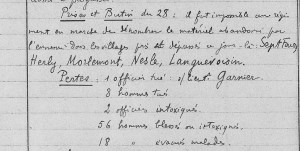 Prises et Butin du 28 : il fut impossible au régi
ment en marche de dénombrer le matériel abandonné par
l'ennemi dans les villages pris et dépassés ce jour-là : Sept Fours,
Herly, Morlemont, Nesle, Languevoisin.
Pertes = 1 officier tué : s/Lieut. Garnier
8 hommes tués
2 officiers intoxiqués.
56 hommes blessés ou intoxiqués.
18 " évacués malades.